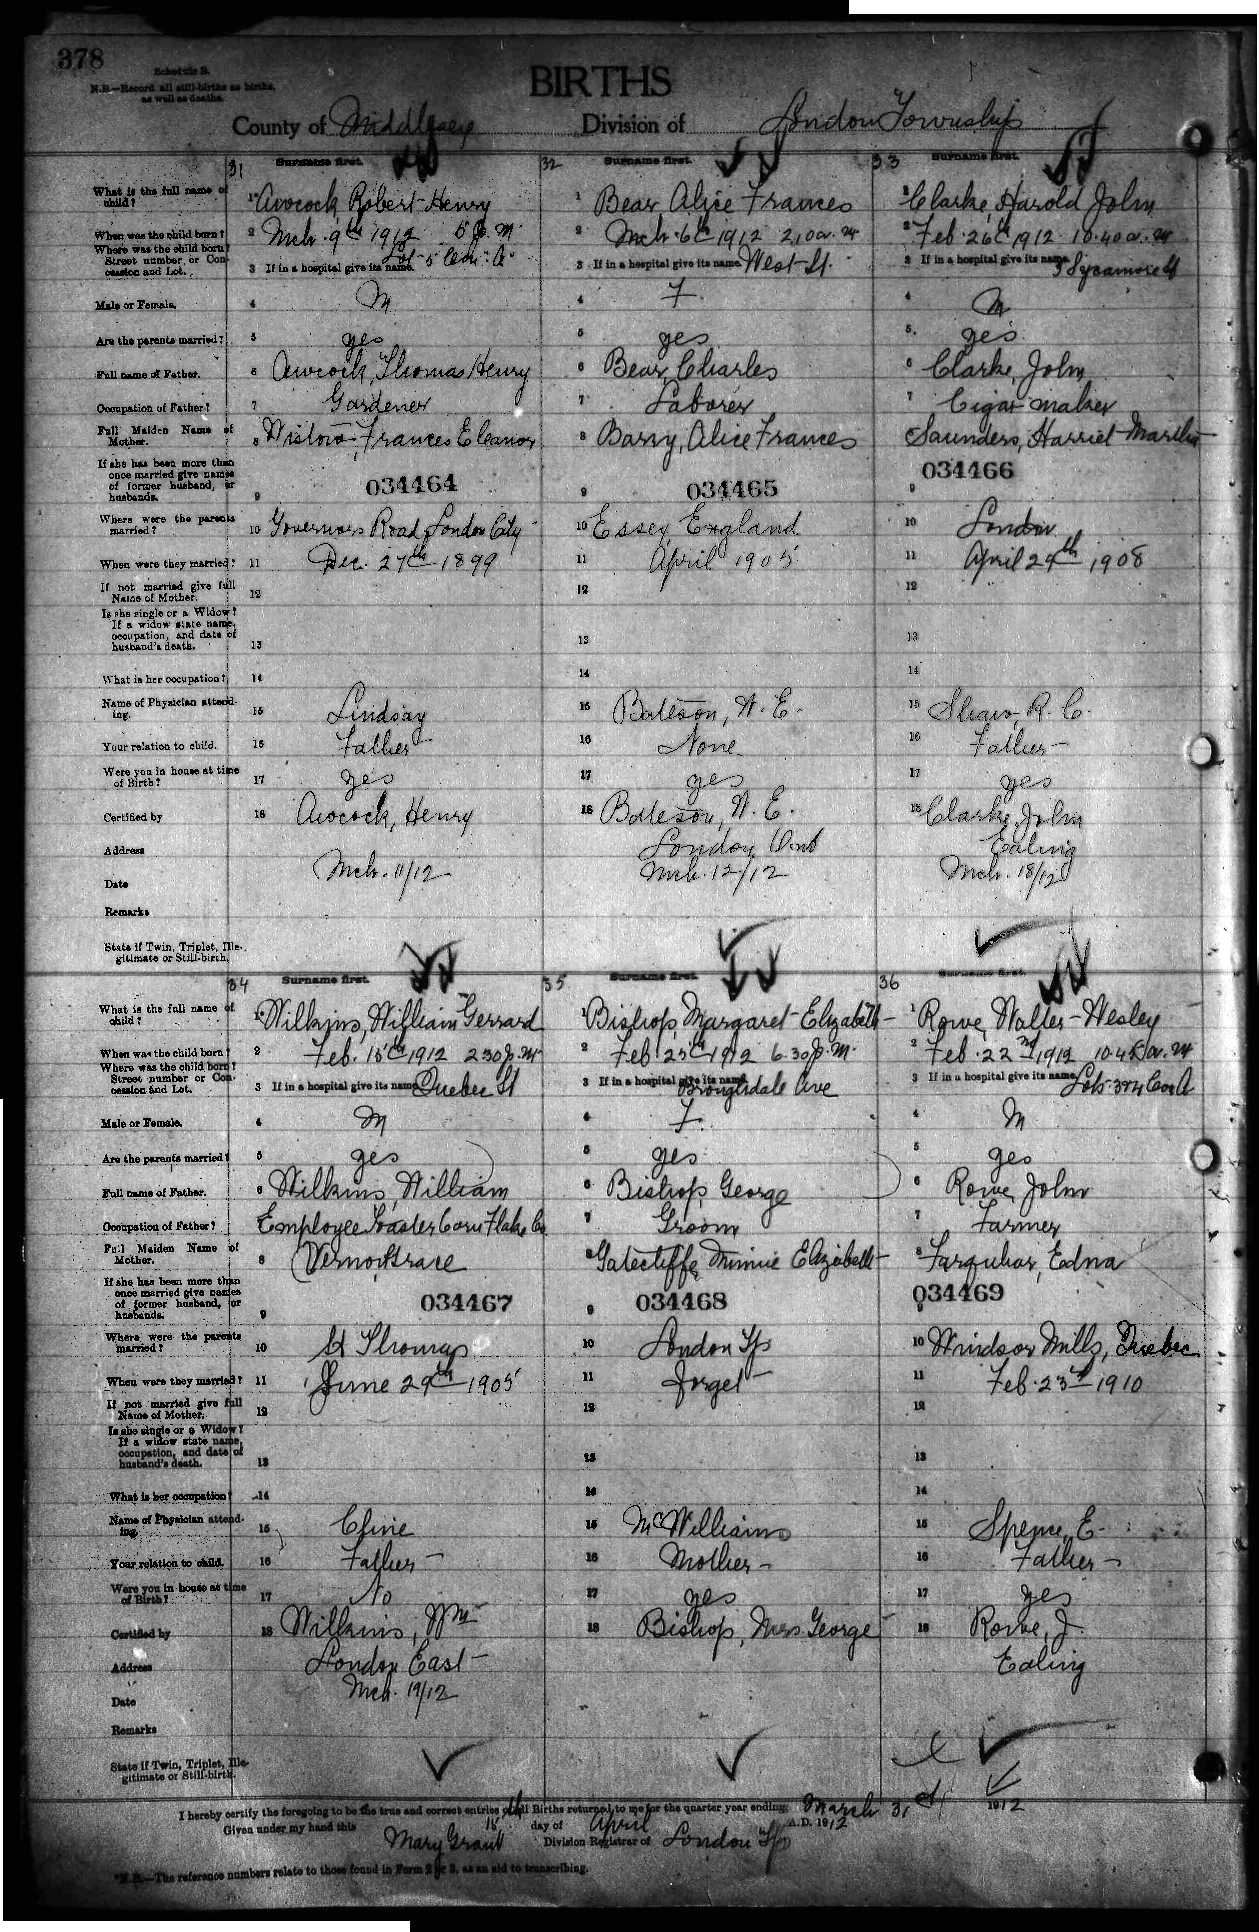 378
Schedule B.
N.B.—Record all still-births as births,
as well as deaths.
BIRTHS
County of Middlesex Division of London Township
31 Surname first. 32 Surname first. 33 Surname first.
What is the full name of child? 1 Awcock, Robert Henry 1 Bear Alice Frances 1 Clarke, Harold John
When was the child born? 2 Mch. 9th 1912 5 P.M. 2 Mch. 6th 1912 2.10 a.m 2 Feb. 26th 1912 10.40 a.m
Where was the child born? Street number, or Concession and Lot. 3 If in a hospital give its name. Lot 5 Con. A. 3 If in a hospital give its name West St. 3 If in a hospital give its name Sycamore St
Male or Female. 4 M 4 F 4 M
Are the parents married? 5 yes 5 yes 5. yes
Full name of Father. 6 Awcock, Thomas Henry 6 Bear, Charles 6 Clarke, John
Occupation of Father? 7 Gardener 7 Laborer 7 Cigar maker
Full Maiden Name of Mother. 8 Frances Eleanor 8 Barry, Alice Frances 8 Saunders, Harriet Martha
If she has been more than once married give names of former husband, or husbands. 9 034464 9 034465 9 034466
Where were the parents married? 10 Governors Road, London City 10 Essex, England 10 London
When were they married? 11 Dec. 27th 1899 11 April 1905 11 April 29th 1908
If not married give full Name of Mother. 12 12 12
Is she single or a Widow? If a widow state name, occupation, and date of husband's death. 13 13 13
What is her occupation? 14 14 14
Name of Physician attending. 15 Lindsay 15 Bateson, W. E. 15 Shaw, R. C.
Your relation to child. 16 Father 16 None 16 Father
Were you in house at time of Birth? 17 yes 17 yes 17 yes
Certified by 18 Awcock, Henry 18 Bateson, W. E. 18 Clarke, John
Address London, Ont Ealing
Date Mch. 11/12 Mch. 12/12 Mch. 18/12
Remarks
State if Twin, Triplet, Illegitimate or Still-birth.
34 Surname first. 35 Surname first. 36 Surname first.
What is the full name of child? 1 Wilkins, William Gerrard 1 Bishop, Margaret Elizabeth 1 Rowe, Walter Wesley
When was the child born? 2 Feb. 15th 1912 2.30 p.m. 2 Feb 25th 1912 6.30 P.M. 2 Feb. 22nd 1912 10.45 a.m
Where was the child born? Street number or Concession and Lot. 3 If in a hospital give its name Quebec St 3 If in a hospital give its name Broughdale Ave 3 If in a hospital give its name, Lots 3 & 4 Con A
Male or Female. 4 M 4 F. 4 M
Are the parents married? 5 yes 5 yes 5 yes
Full name of Father. 6 Wilkins, William 6 Bishop, George 6 Rowe, John
Occupation of Father? Employee Toaster Corn Flake Co 7 Groom 7 Farmer
Full Maiden Name of Mother. 8 Vernon, Grace 8 Gatecliffe, Minnie Elizabeth 8 Farquhar, Edna
If she has been more than once married give names of former husband, or husbands. 9 034467 9 034468 9 034469
Where were the parents married? 10 St Thomas 10 London Tp 10 Windsor Mills, Quebec
When were they married? 11 June 29th 1905 11 Forget 11 Feb. 23rd 1910
If not married give full Name of Mother. 12 12 12
Is she single or a Widow? If a widow state name, occupation, and date of husband's death. 13 13 13
What is her occupation? 14 14 14
Name of Physician attending. 15 Cline 15 McWilliams 15 Spence, E.
Your relation to child. 16 Father 16 Mother 16 Father
Were you in house at time of Birth? 17 No 17 yes 17 yes
Certified by 18 Wilkins, Wm 18 Bishop, Mrs George 18 Rowe, J.
Address London East Ealing
Date Mch. 19/12
Remarks
State if Twin, Triplet, Illegitimate or Still-birth.
I hereby certify the foregoing to be the true and correct entries of all Births returned to me for the quarter year ending March 31 1912
Given under my hand this 15th day of April A.D. 1912
Mary Grant Division Registrar of London Tp
*N.B.—The reference numbers relate to those found in Form 2 or 3, as an aid to transcribing.